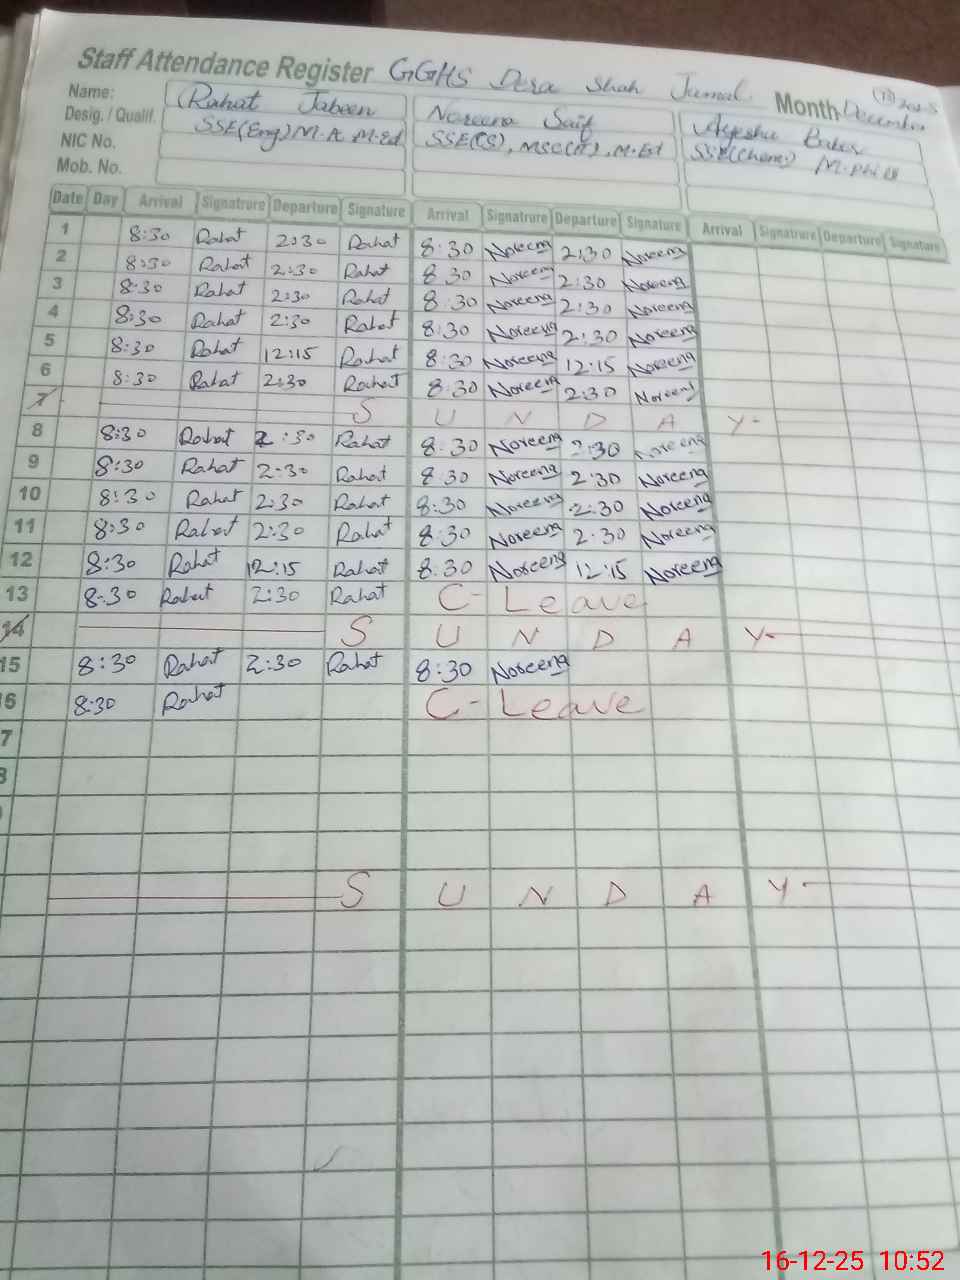 Staff Attendance Register GGHS Dera Shah Jamal Month December (12) 2025
Name: Rahat Jabeen Noreena Saif Ayesha
Desig. / Qualif. SSE(Eng) M.A M.Ed SSE(CS), MSc(IT), M.Ed SSE(Chem) M.Phill
NIC No.
Mob. No.
Date Day Arrival Signatrure Departure Signature Arrival Signatrure Departure Signature Arrival Signatrure Departure Signature
1 8:30 Rahat 2:30 Rahat 8:30 Noreena 2:30 Noreena
2 8:30 Rahat 2:30 Rahat 8:30 Noreena 2:30 Noreena
3 8:30 Rahat 2:30 Rahat 8:30 Noreena 2:30 Noreena
4 8:30 Rahat 2:30 Rahat 8:30 Noreena 2:30 Noreena
5 8:30 Rahat 12:15 Rahat 8:30 Noreena 12:15 Noreena
6 8:30 Rahat 2:30 Rahat 8:30 Noreena 2:30 Noreena
7 S U N D A Y
8 8:30 Rahat 2:30 Rahat 8:30 Noreena 2:30 Noreena
9 8:30 Rahat 2:30 Rahat 8:30 Noreena 2:30 Noreena
10 8:30 Rahat 2:30 Rahat 8:30 Noreena 2:30 Noreena
11 8:30 Rahat 2:30 Rahat 8:30 Noreena 2:30 Noreena
12 8:30 Rahat 12:15 Rahat 8:30 Noreena 12:15 Noreena
13 8:30 Rahat 2:30 Rahat C-Leave
14 S U N D A Y
15 8:30 Rahat 2:30 Rahat 8:30 Noreena
6 8:30 Rahat C-Leave
7
8
S U N D A Y
16-12-25 10:52